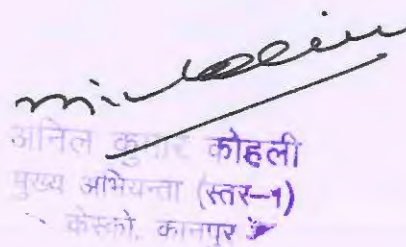 अनिल कुमार कोहली
मुख्य अभियन्ता (स्तर-१)
केस्को, कानपुर